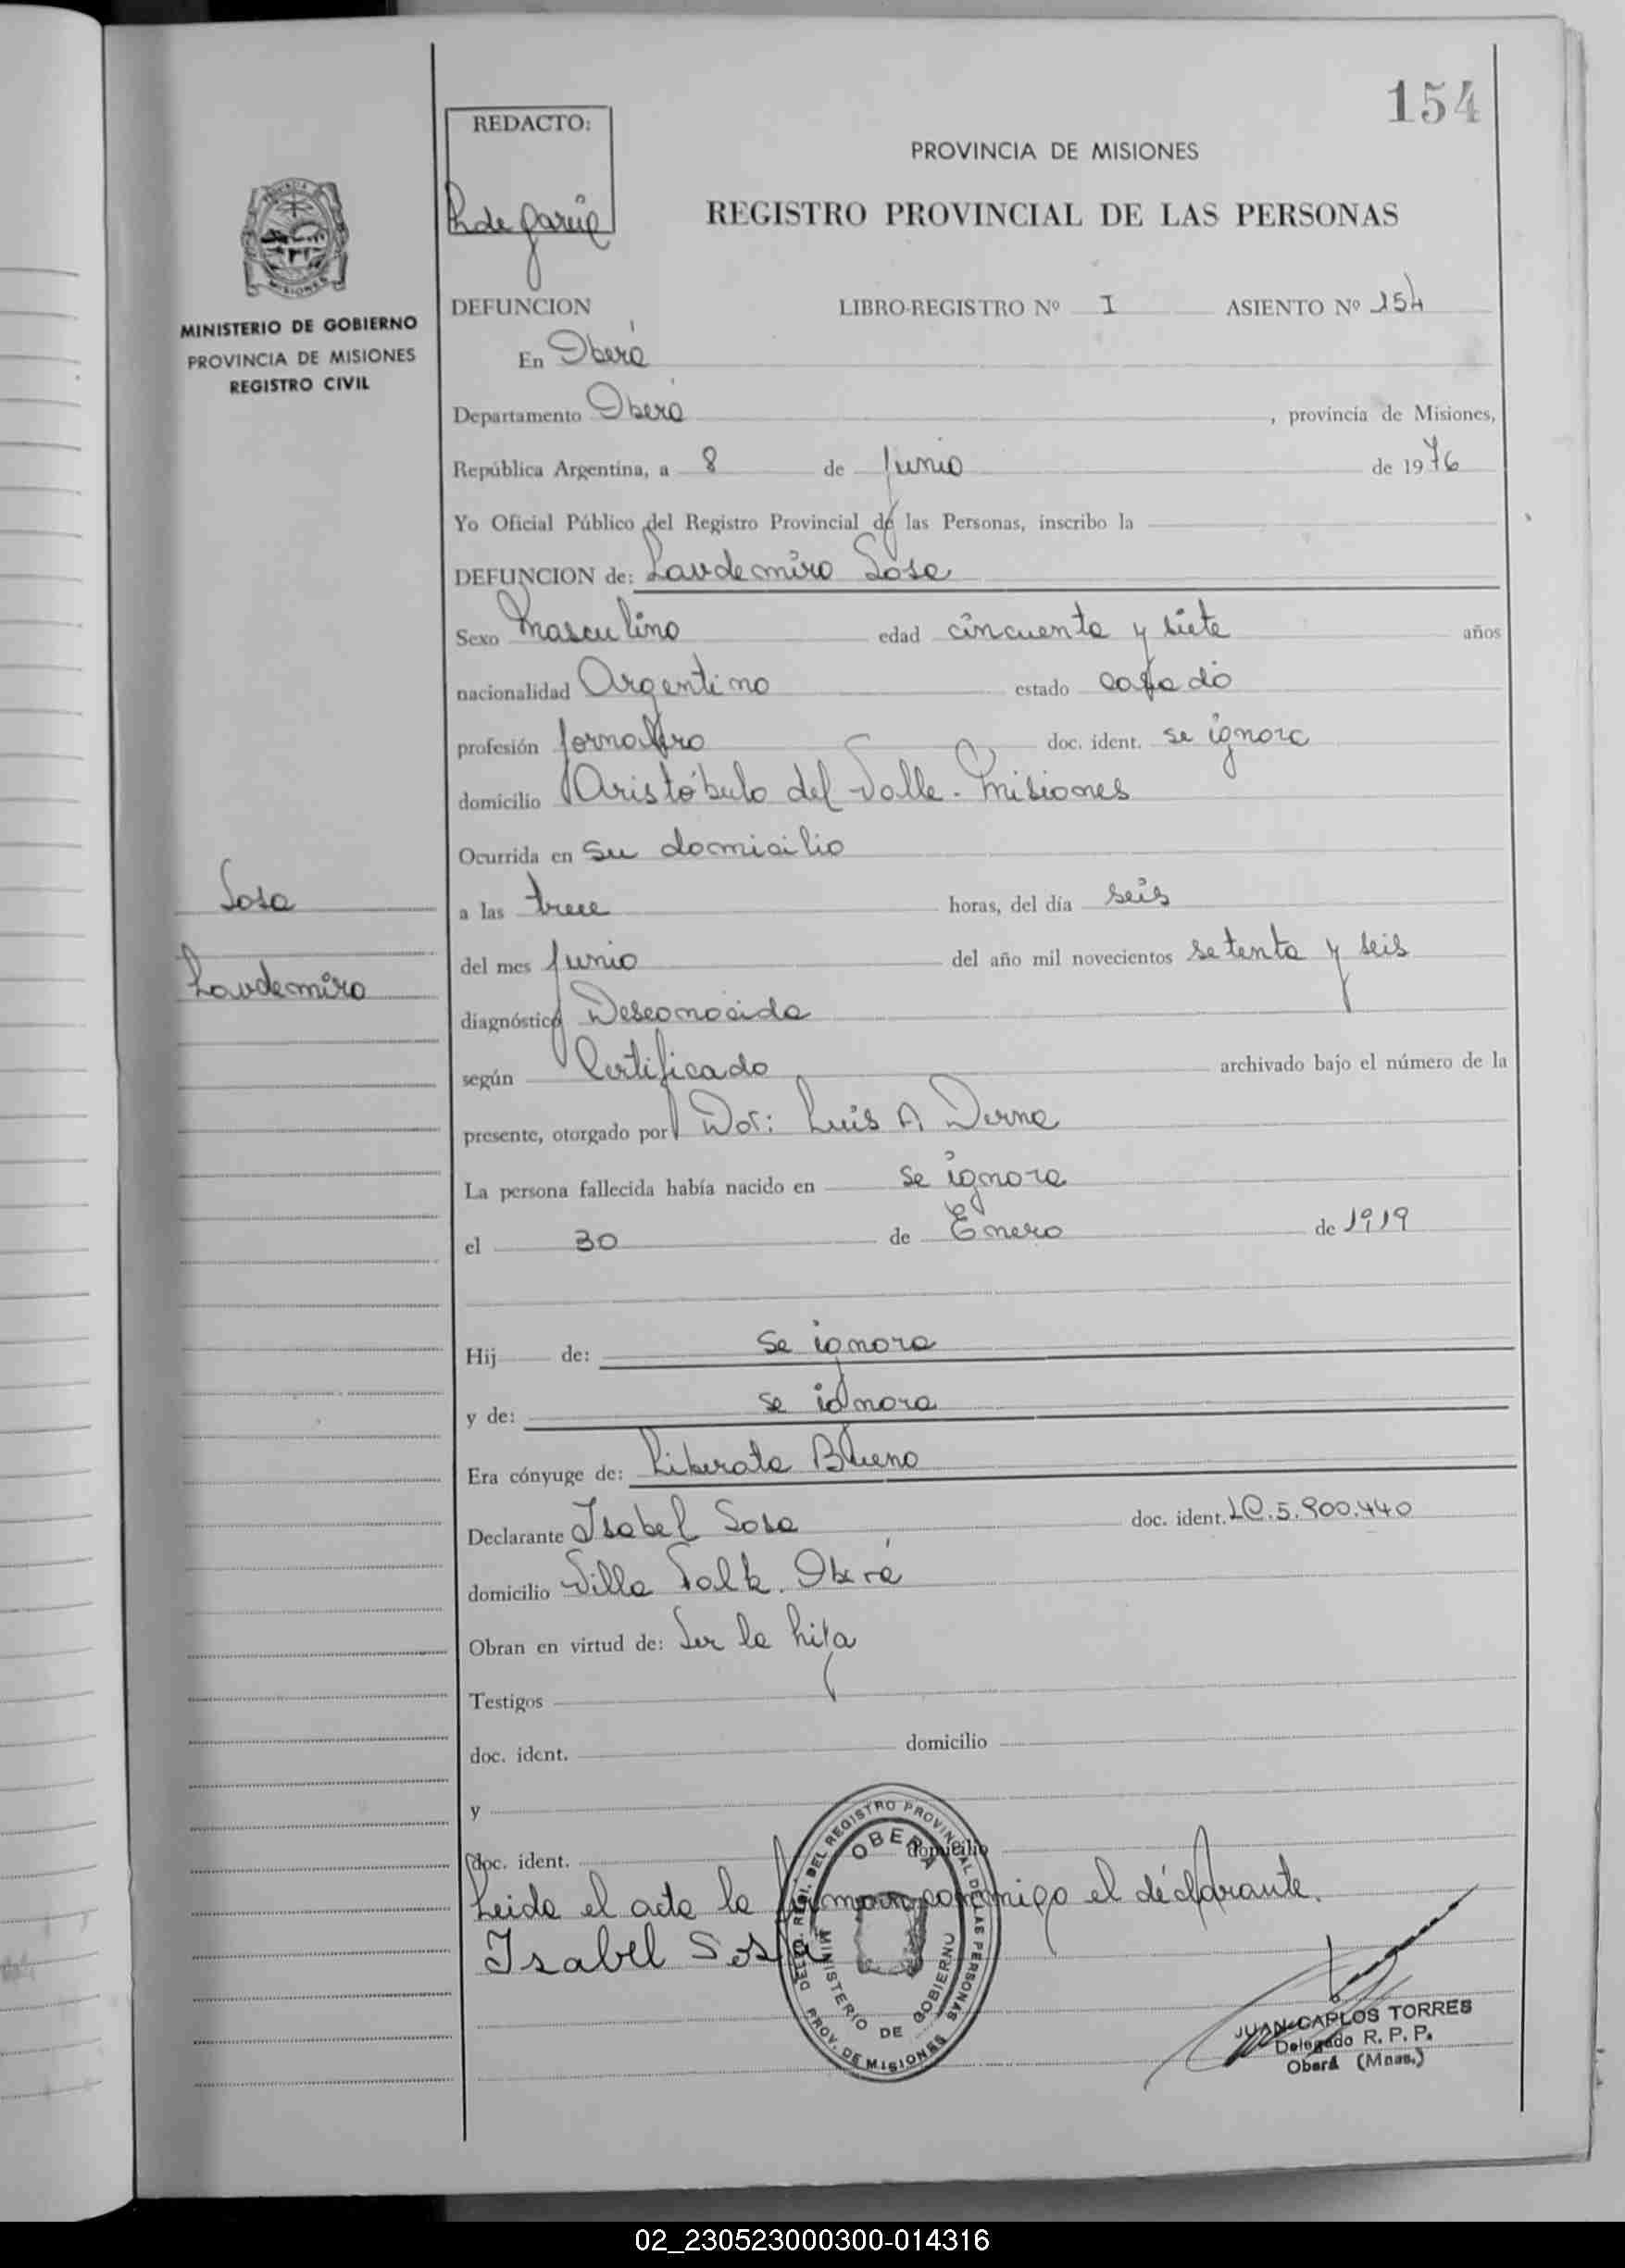 154
REDACTO:
PROVINCIA DE MISIONES
REGISTRO PROVINCIAL DE LAS PERSONAS
MINISTERIO DE GOBIERNO
PROVINCIA DE MISIONES
REGISTRO CIVIL
DEFUNCION LIBRO-REGISTRO Nº I ASIENTO Nº 154
En Oberá
Departamento Oberá, provincia de Misiones,
República Argentina, a 8 de Junio de 1976
Yo Oficial Público del Registro Provincial de las Personas, inscribo la
DEFUNCION de: Laudemiro Sosa
Sexo Masculino edad cincuenta y siete años
nacionalidad Argentino estado casado
profesión Jornalero doc. ident. se ignora
domicilio Aristóbulo del Valle - Misiones
Ocurrida en su domicilio
Sosa
a las trece horas, del día seis
Laudemiro
del mes Junio del año mil novecientos setenta y seis
diagnóstico Desconocida
según Certificado archivado bajo el número de la
presente, otorgado por Dor: Luis A
La persona fallecida había nacido en se ignora
el 30 de Enero de 1919
Hij de: se ignora
y de: se ignora
Era cónyuge de: Liberata Bueno
Declarante Isabel Sosa doc. ident. LC. 5.900.440
domicilio Villa Oberá
Obran en virtud de: Ser la hija
Testigos
doc. ident. domicilio
y
doc. ident. domicilio
Leida el acta la firman conmigo el declarante.
Isabel Sosa
DELEG. REGI. DEL REGISTRO PROVINCIAL DE LAS PERSONAS
OBERA
MINISTERIO DE GOBIERNO
PROV. DE MISIONES
JUAN CARLOS TORRES
Delegado R. P. P.
Oberá (Mnes.)
02_230523000300-014316